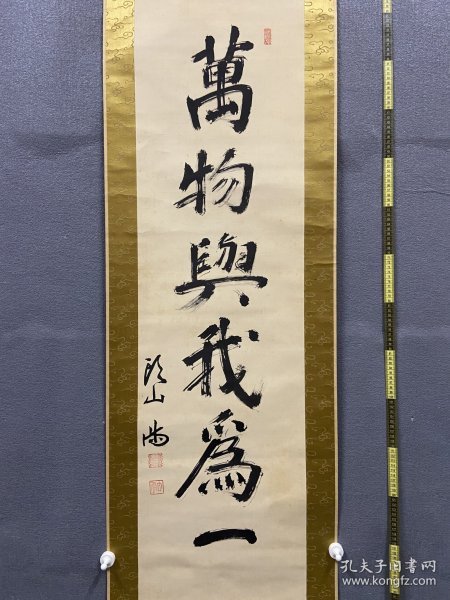 萬物與我為一
頭山滿
孔夫子旧书网
www.kongfz.com